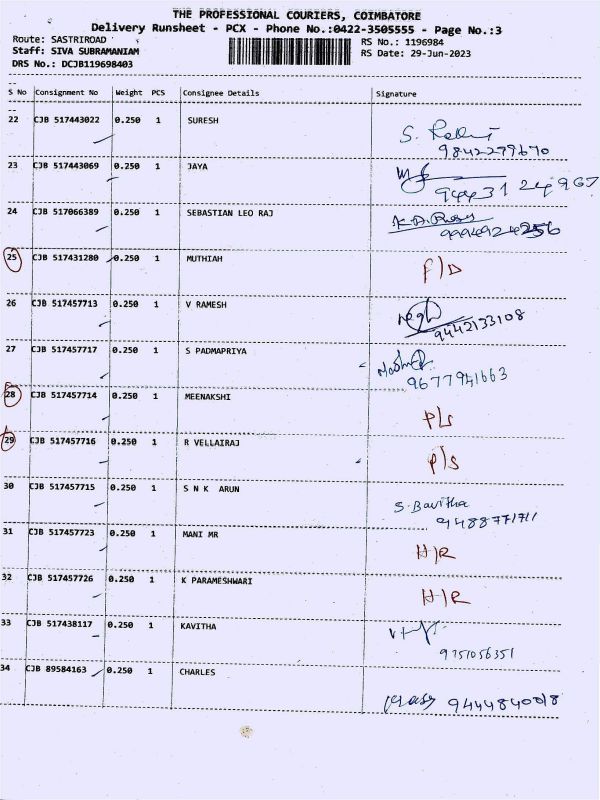 THE PROFESSIONAL COURIERS, COIMBATORE
Delivery Runsheet - PCX - Phone No.:0422-3505555 - Page No.:3
Route: SASTRIROAD RS No.: 1196984
Staff: SIVA SUBRAMANIAM RS Date: 29-Jun-2023
DRS No.: DCJB119698403
S No Consignment No Weight PCS Consignee Details Signature
22 CJB 517443022 0.250 1 SURESH
9842279670
23 CJB 517443069 0.250 1 JAYA
94431 24967
24 CJB 517066389 0.250 1 SEBASTIAN LEO RAJ
9994924256
25 CJB 517431280 0.250 1 MUTHIAH
P/D
26 CJB 517457713 0.250 1 V RAMESH
9442133108
27 CJB 517457717 0.250 1 S PADMAPRIYA
9677941663
28 CJB 517457714 0.250 1 MEENAKSHI
29 CJB 517457716 0.250 1 R VELLAIRAJ
P/S
30 CJB 517457715 0.250 1 S N K ARUN
S. Bavitha
9488771711
31 CJB 517457723 0.250 1 MANI MR
H/R
32 CJB 517457726 0.250 1 K PARAMESHWARI
H/R
33 CJB 517438117 0.250 1 KAVITHA
9751056351
34 CJB 89584163 0.250 1 CHARLES
9444840018